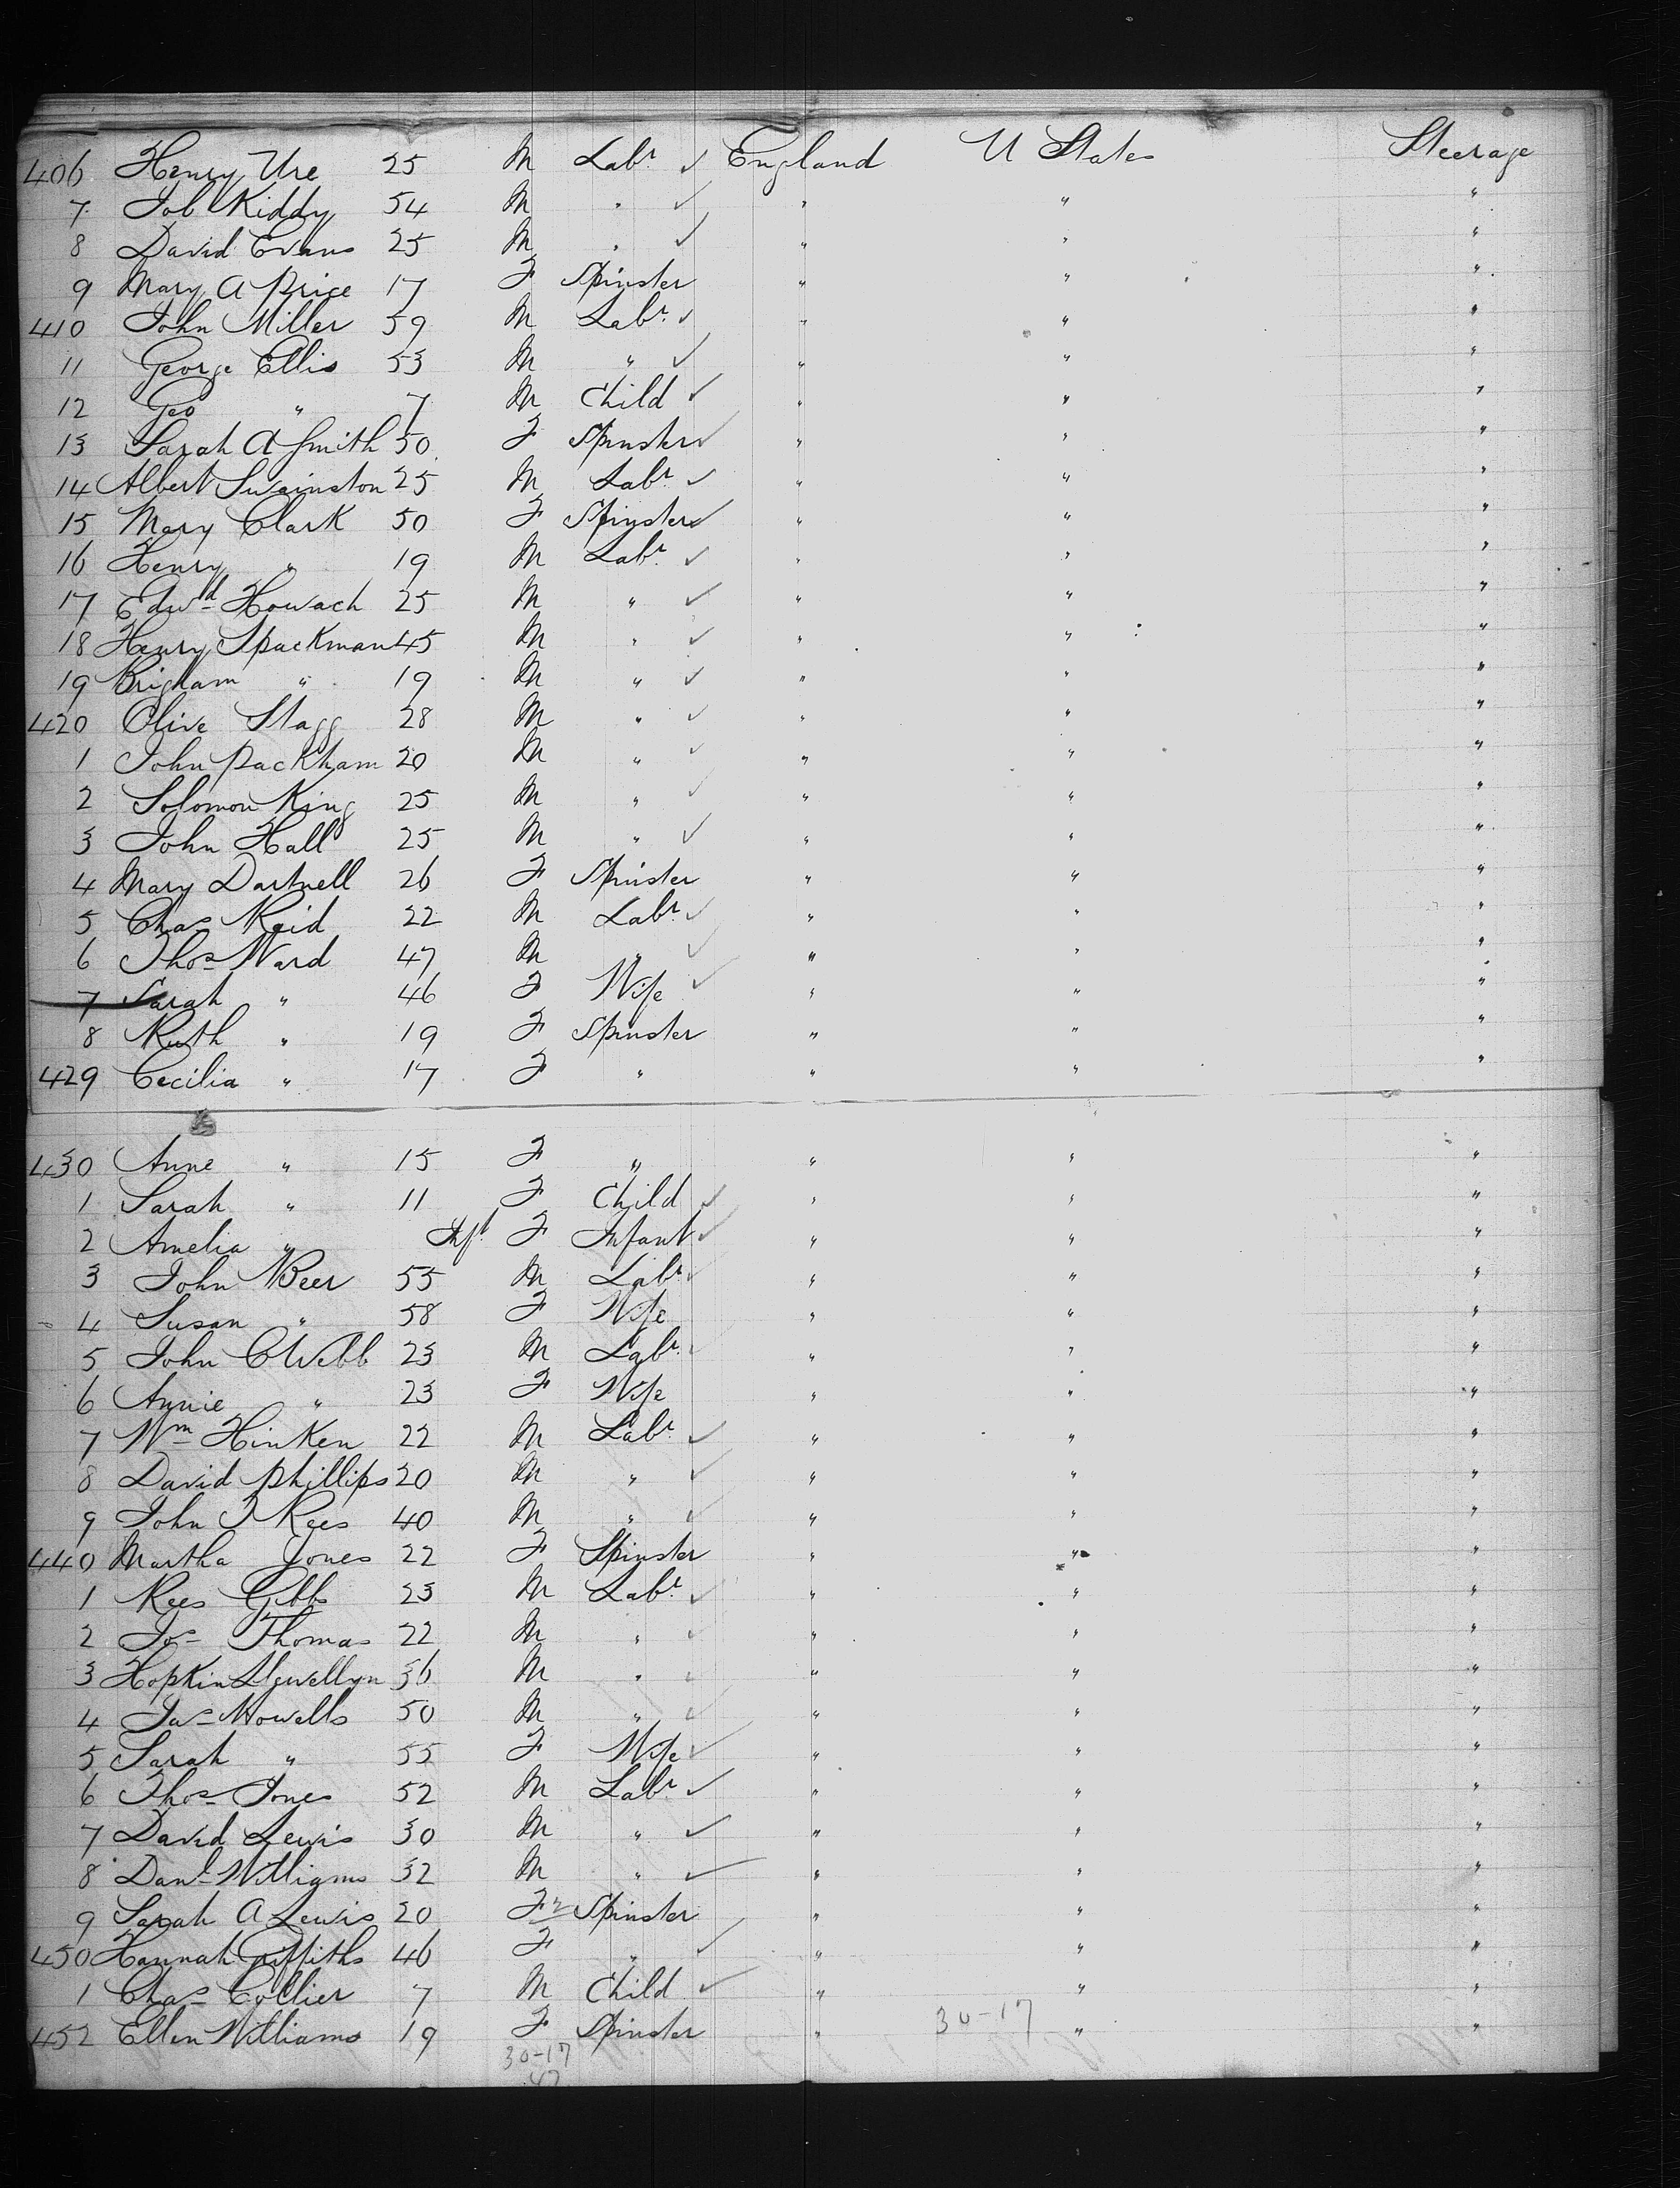 406 Henry Ure 25 M Labr ✓ England U States Steerage
7 Job Kiddy 54 M " ✓ " " "
8 David Evans 25 M " ✓ " " "
9 Mary A Price 17 F Spinster " " "
410 John Miller 59 M Labr ✓ " " "
11 George Ellis 53 M " ✓ " " "
12 Geo " 7 M Child ✓ " " "
13 Sarah A Smith 50 F Spinster ✓ " " "
14 Albert Swainston 25 M Labr ✓ " " "
15 Mary Clark 50 F Spinster ✓ " " "
16 Henry " 19 M Labr ✓ " " "
17 Edwd Howach 25 M " ✓ " " "
18 Henry Spackman 45 M " ✓ " " "
19 Brigham " 19 M " ✓ " " "
420 Olive Stagg 28 M " ✓ " " "
1 John Packham 20 M " ✓ " " "
2 Solomon King 25 M " ✓ " " "
3 John Hall 25 M " ✓ " " "
4 Mary Dartnell 26 F Spinster " " "
5 Chas Reid 22 M Labr ✓ " " "
6 Thos Ward 47 M " ✓ " " "
7 Sarah " 46 F Wife ✓ " " "
8 Ruth " 19 F Spinster " " "
429 Cecilia " 17 F " " " "
430 Anne " 15 F " " " "
1 Sarah " 11 F Child ✓ " " "
2 Amelia " Inft F Infant ✓ " " "
3 John Beer 55 M Labr ✓ " " "
4 Susan " 58 F Wife " " "
5 John C Webb 23 M Labr ✓ " " "
6 Annie " 23 F Wife " " "
7 Wm Hinken 22 M Labr ✓ " " "
8 David Phillips 20 M " ✓ " " "
9 John J Rees 40 M " ✓ " " "
440 Martha Jones 22 F Spinster " " "
1 Rees Gibbs 23 M Labr ✓ " " "
2 Jos Thomas 22 M " ✓ " " "
3 Hopkin Llewellyn 36 M " ✓ " " "
4 Jas Howells 50 M " ✓ " " "
5 Sarah " 55 F Wife ✓ " " "
6 Thos Jones 52 M Labr ✓ " " "
7 David Lewis 30 M " ✓ " " "
8 Danl Williams 32 M " ✓ " " "
9 Sarah A Lewis 20 F Spinster " " "
450 Hannah Griffiths 46 F " ✓ " " "
1 Chas Collier 7 M Child ✓ " " "
452 Ellen Williams 19 F Spinster " 30-17 " "
30-17
47